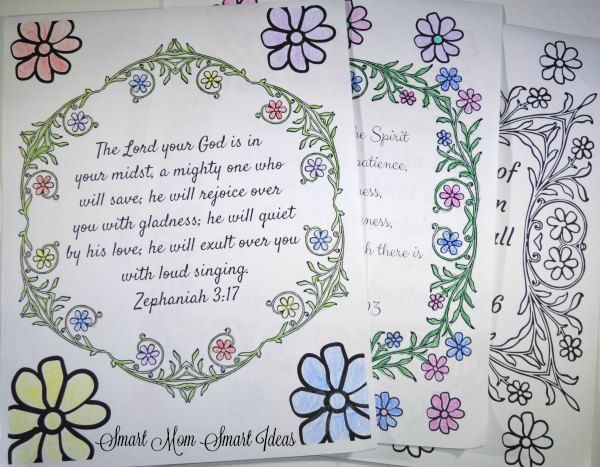 The Lord your God is in
your midst, a mighty one who
will save; he will rejoice over
you with gladness; he will quiet
by his love; he will exult over you
with loud singing.
Zephaniah 3:17
Spirit
patience,
there is
of
Smart Mom Smart Ideas